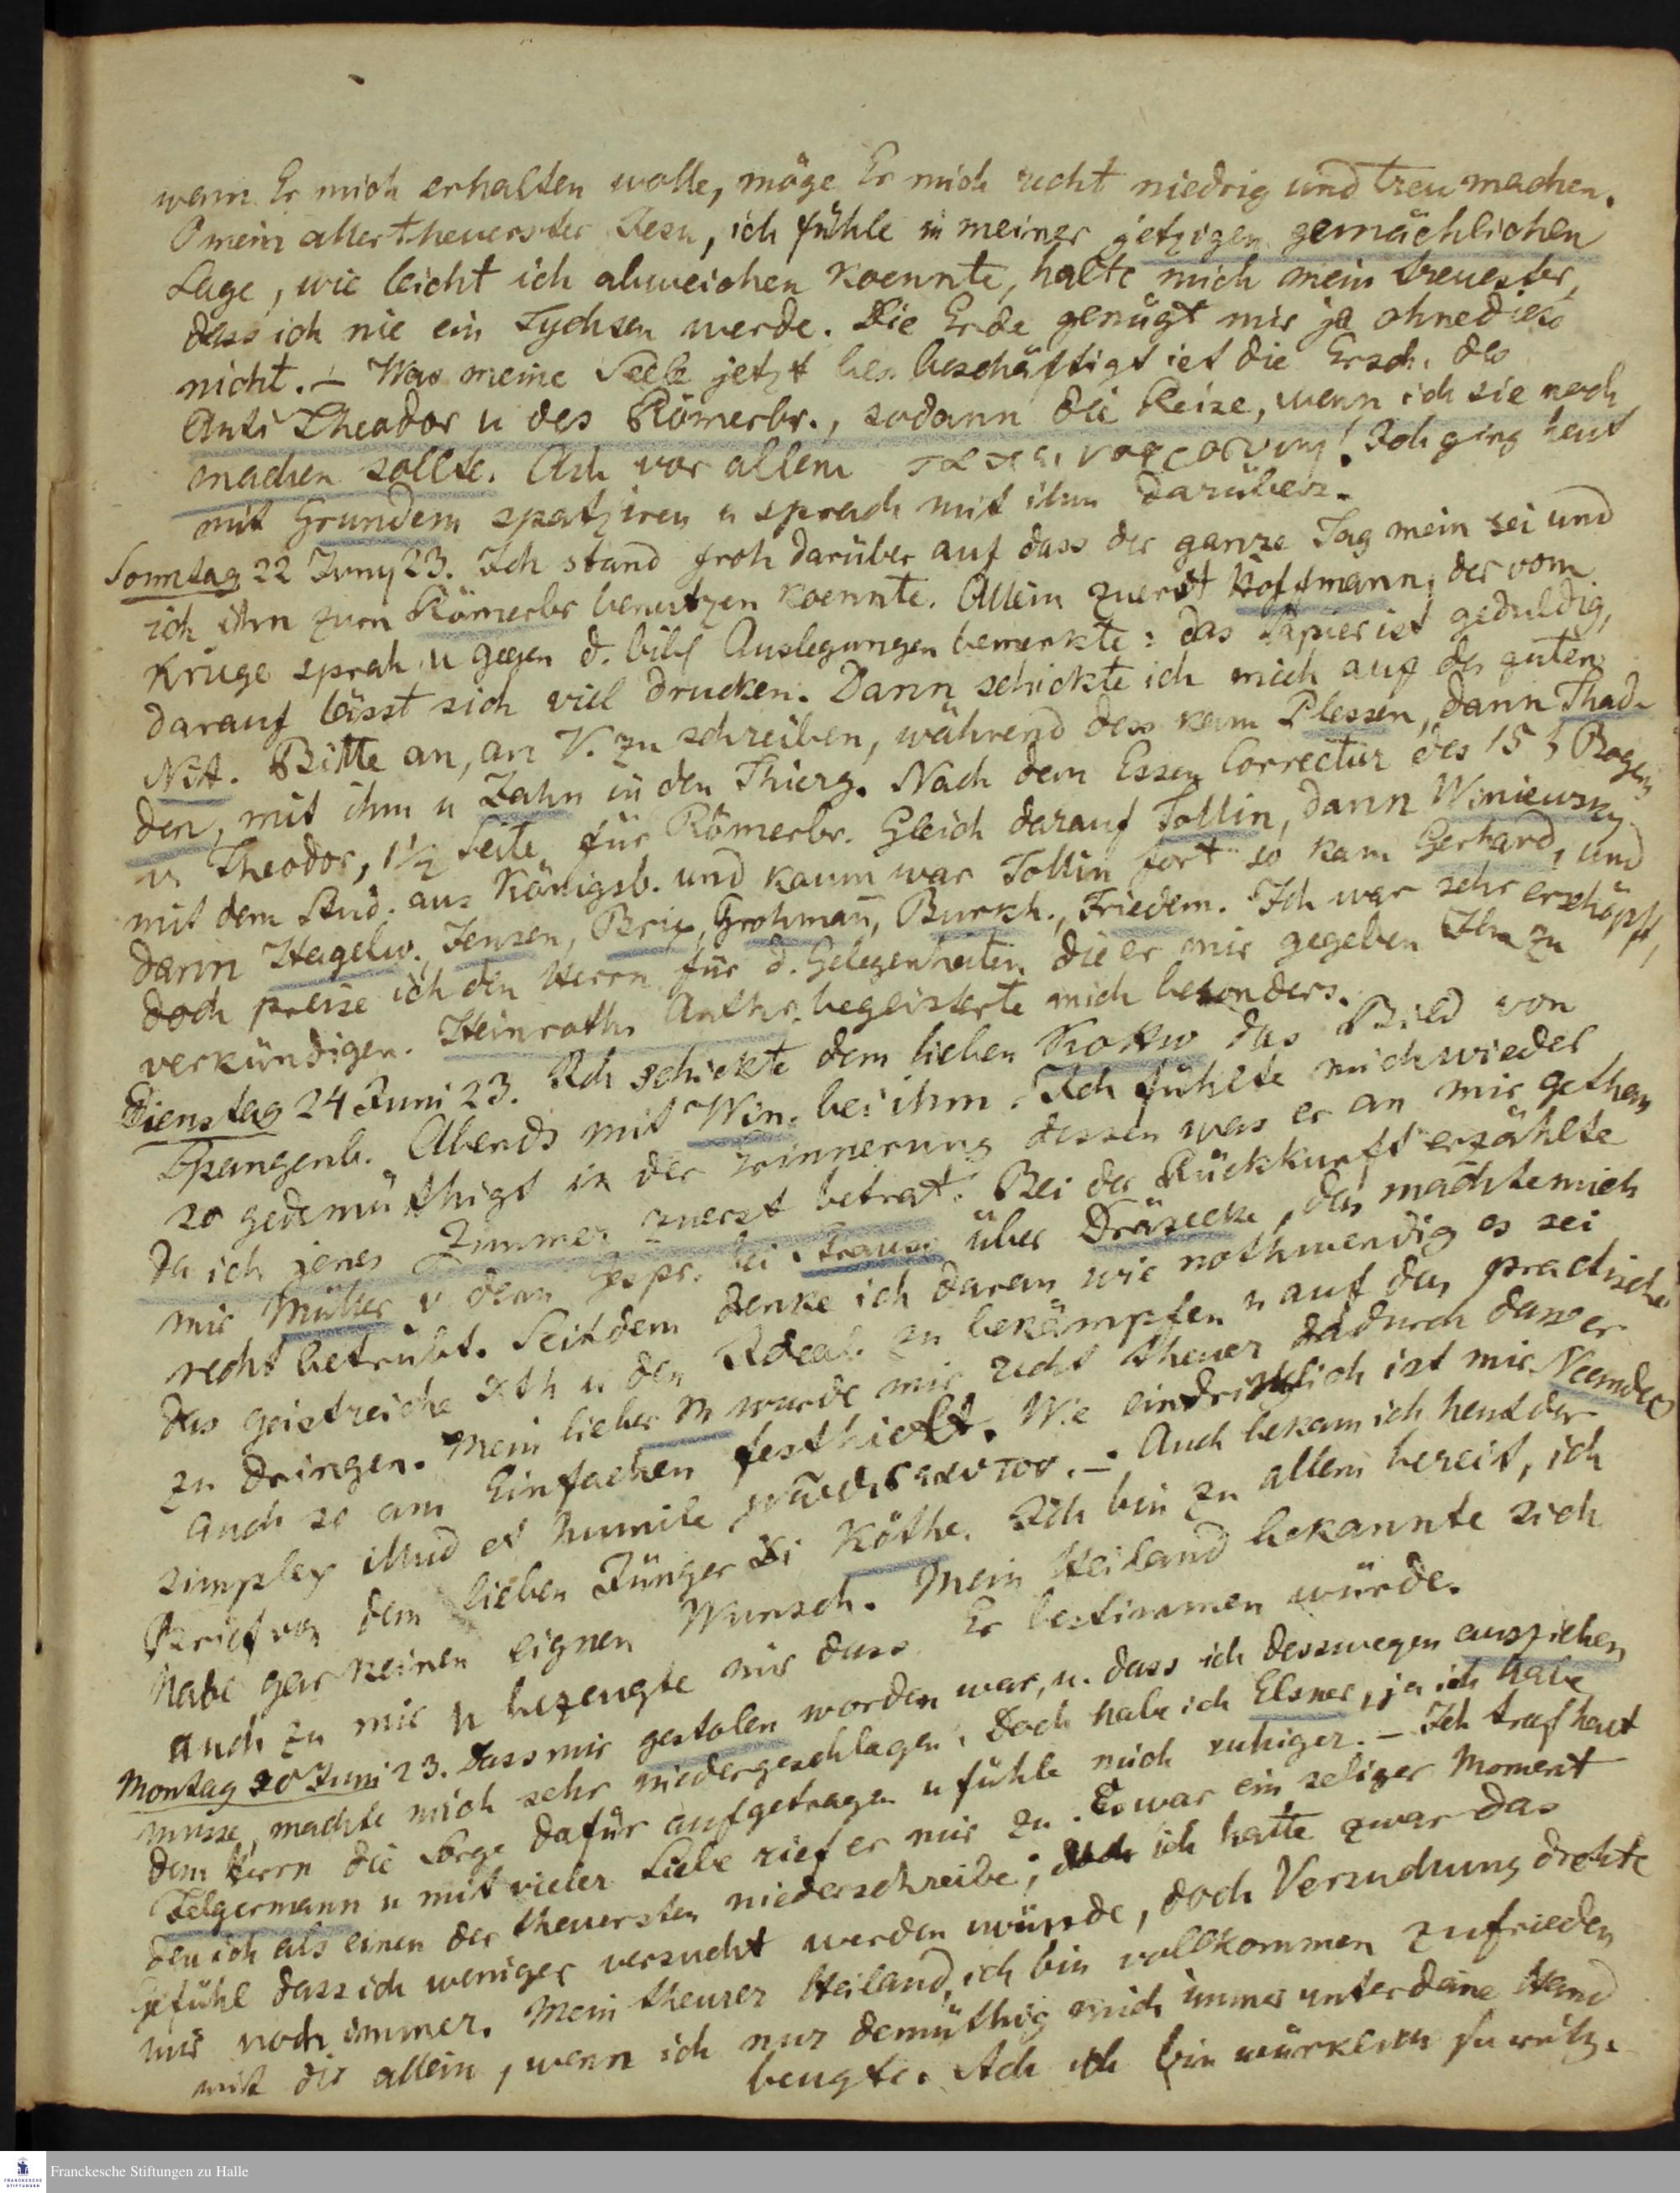 wenn Er mich erhalten wolle, möge Er mich recht niedrig und treu machen.
O mein allertheuerster Jesu, ich fühle in meiner jetzigen gemächlichen
Lage, wie leicht ich abweichen koennte, halte mich mein treuester,
dass ich nie ein Tychsen werde. Die Erde genügt mir ja ohnedies
nicht. – Was meine Seele jetzt bes. beschäftigt ist die Ersch. des
Anti Theodor u des Römerbr., sodann die Reise, wenn ich sie noch
machen sollte. Ach vor allem! Ich ging heut
mit Grundem spatziren u sprach mit ihm darüber.
Sonntag 22 Juny 23. Ich stand froh darüber auf dass der ganze Tag mein sei und
ich ihn zum Römerbr benutzen koennte. Allein zuerst Hoffmann, der vom
Kruge sprah u gegen d. bibl Auslegungen bemerkte: das Papier ist geduldig,
darauf lässt sich viel drucken. Dann schickte ich mich auf der guten
Nit. Bitte an, an V. zu schreiben, während dess kam Plessen, dann Thad-
den, mit ihm u Zahn in den Thierg. Nach dem Essen Correctur des 15 Bogens
v. Theodor, 1½ Seite für Römerbr. Gleich darauf Tollin, dann Winiewsky
mit dem Stud. aus Königsb. und kaum war Tollin fort so kam Gerhard, und
dann Hagelw., Jensen, Brix, Grohmañ, Burkh., Friedem. Ich war sehr erschöpft,
doch preise ich den Herrn für d. Gelegenheiten die er mir gegeben Ihn zu
verkündigen. Heinroths Anthr. begeisterte mich besonders.
Dienstag 24 Juni 23. Ich schickte dem lieben Kottw das Bild von
Spangenb. Abends mit Win. bei ihm. Ich fühlte mich wieder
so gedemüthigt in der Erinnerung dessen was er an mir gethan
da ich jenes Zimmer zuerst betrat. Bei der Rückkunft erzählte
mir Müller v dem Gespr. bei Strauss über Dräseke, das machte mich
recht betrübt. Seitdem denke ich daran wie nothwendig es sei
das geistreiche u den Ideal. zu bekämpfen u auf das practische
zu dringen. Mein lieber M wurde mir recht theuer dadurch dass er
auch so am Einfachen festhielt. Wie eindringlich ist mir Neanders
simplex illud et humile. – Auch bekam ich heut der
Brief von dem lieben Jünger Köthe. Ich bin zu allem bereit, ich
habe gar keinen eignen Wunsch. Mein Heiland bekannte sich
auch zu mir u bezeugte mir dass Er bestimmen würde.
Montag 30 Juni 23. Dass mir gestolen worden war, u. dass ich desswegen ausziehen
müsse, machte mich sehr niedergeschlagen. Doch habe ich Elsner, ja ich habe
dem Herrn die Sorge dafür aufgetragen u fühle mich ruhiger. – Ich traf heut
Telgermann u mit vieler Liebe rief er mir zu. Es war ein seliger Moment
den ich als einen der theuersten niederschreibe; ich hatte zwar das
Gefühl dass ich weniger versucht werden würde, doch Versuchung drohte
mir noch immer. Mein theurer Heiland, ich bin vollkommen zufrieden
mit dir allein, wenn ich nur demüthig mich immer unter deine Hand
beugte. Ach ich bin
Franckesche Stiftungen zu Halle